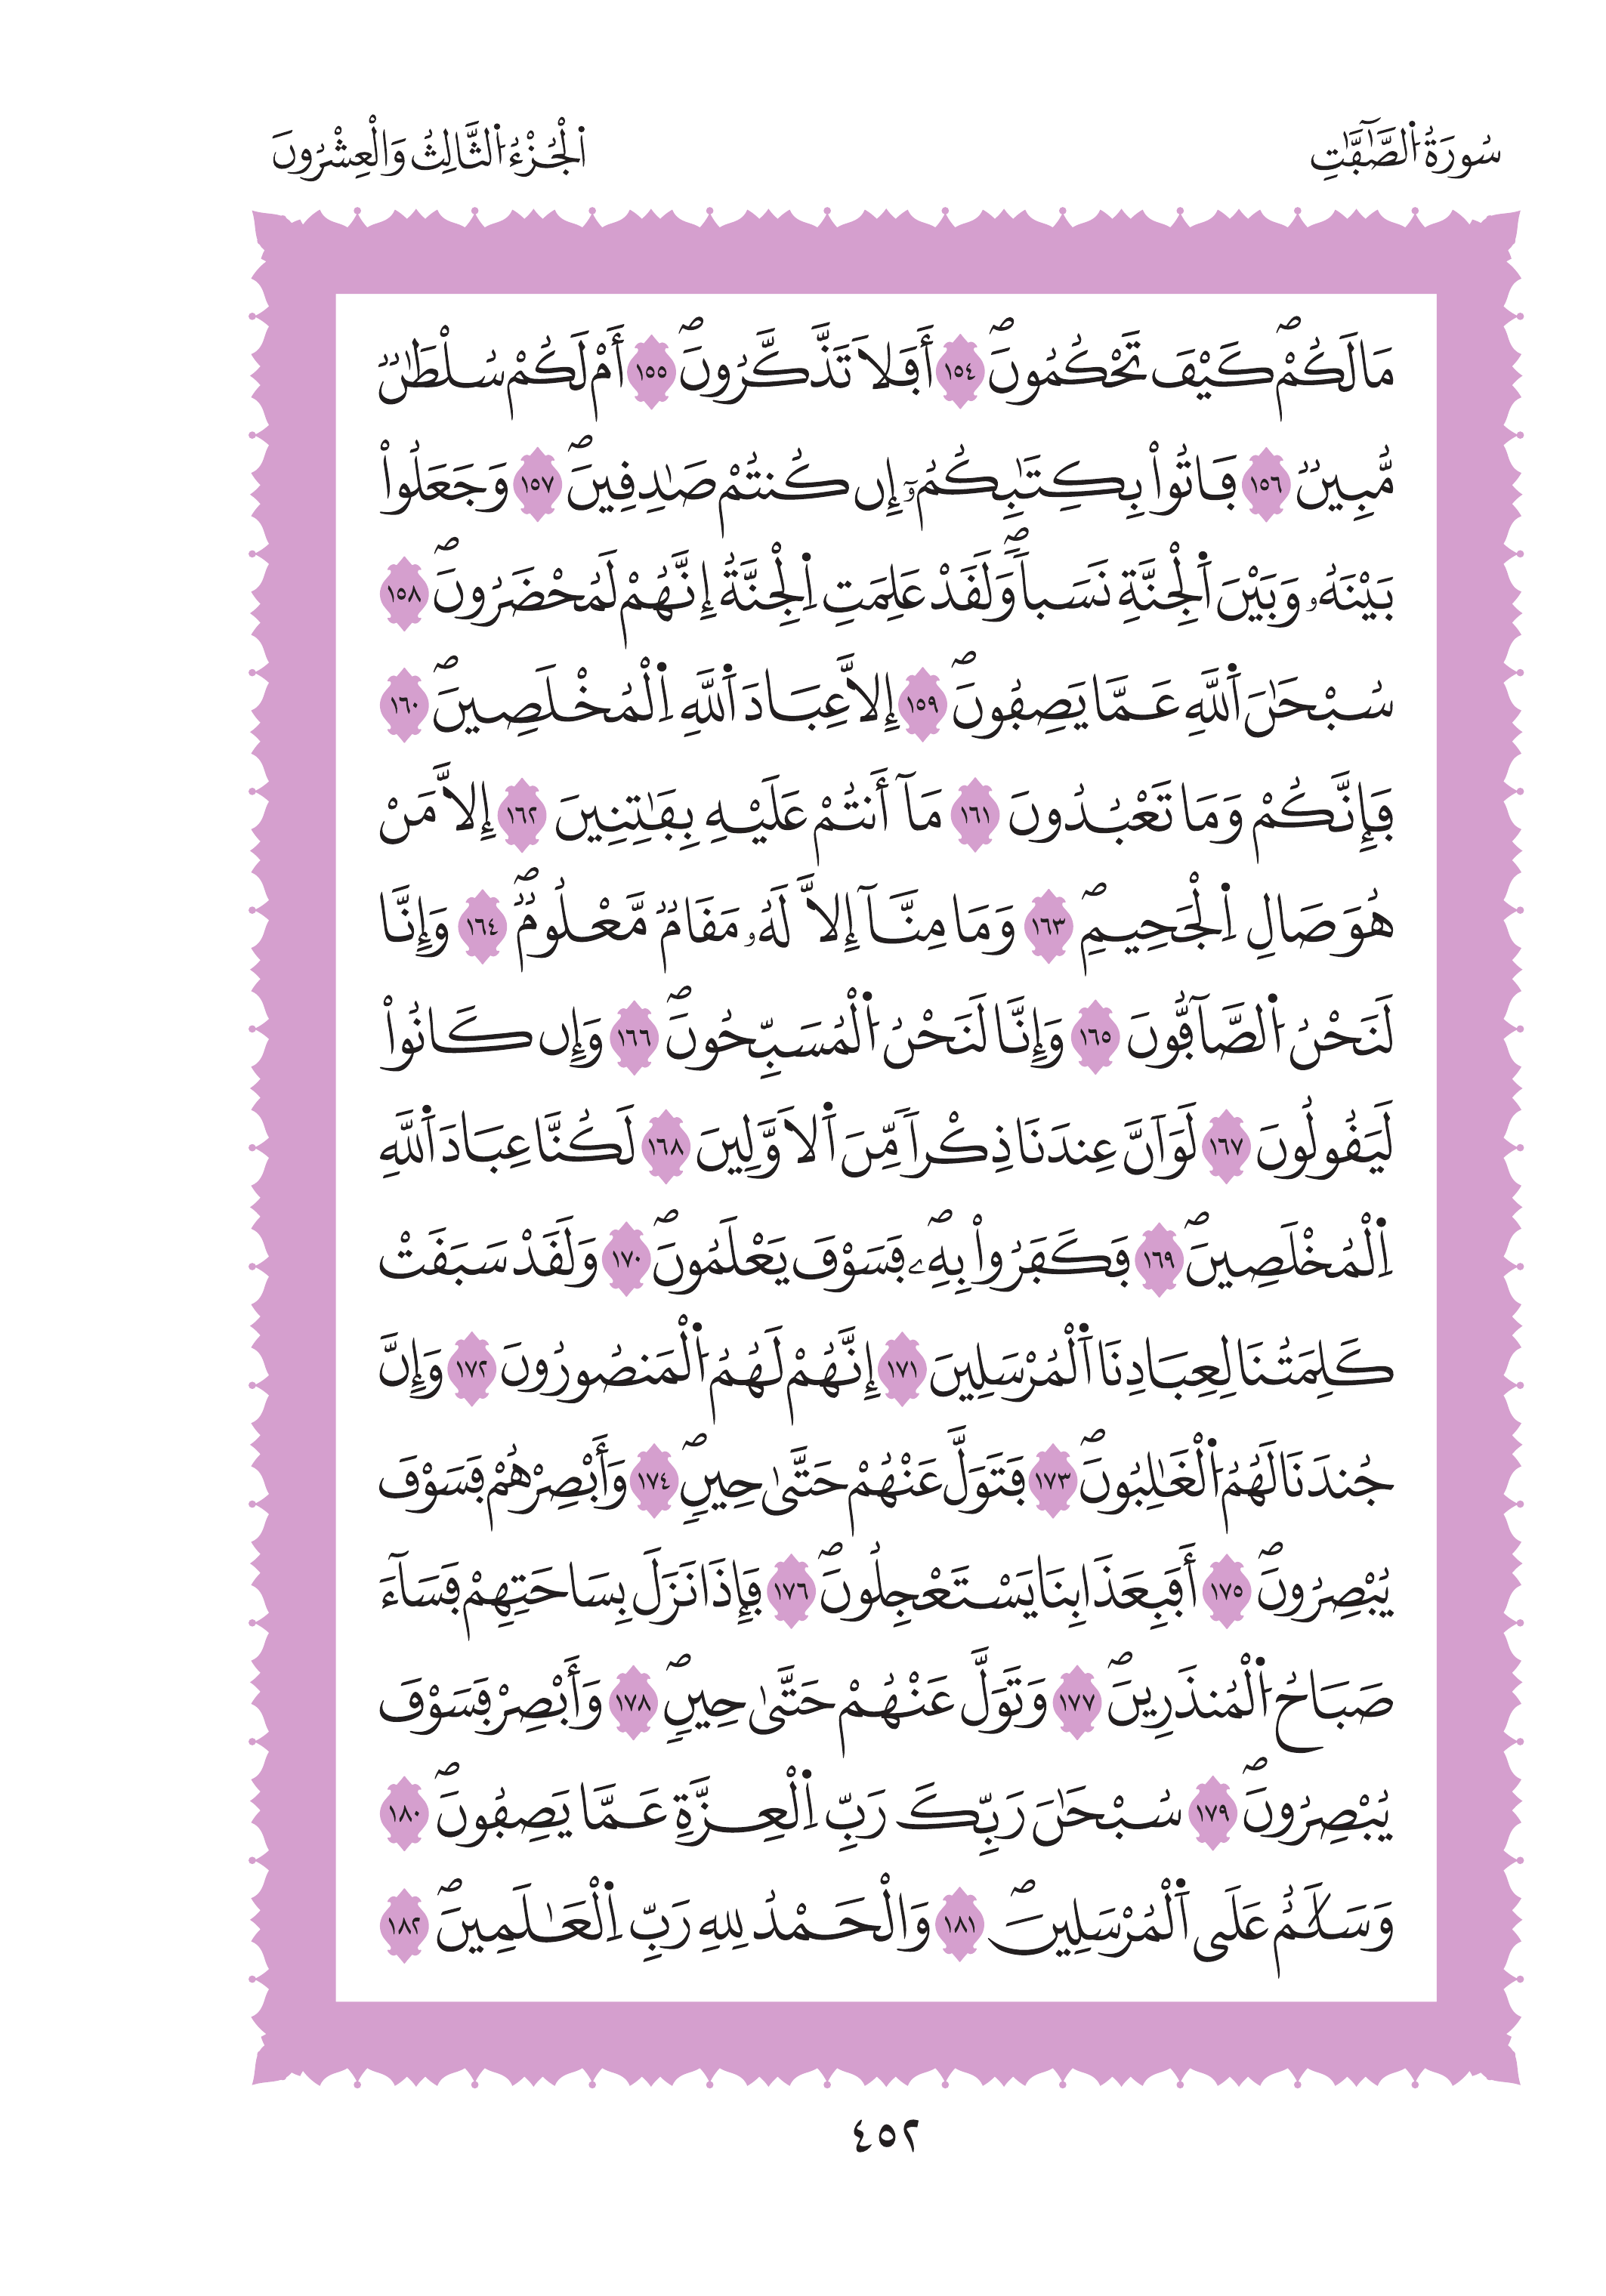 سُورَةُ اُ۬لصَّٰٓفَّٰتِ
اَ۬لْجُزْءُ اُ۬لثَّالِثُ وَالْعِشْرُونَ
مَا لَكُمْۖ كَيْفَ تَحْكُمُونَۖ ١٥٤ أَفَلَا تَذَّكَّرُونَۖ ١٥٥ أَمْ لَكُمْ سُلْطَٰنٞ
مُّبِينٞ ١٥٦ فَاتُواْ بِكِتَٰبِكُمُۥٓ إِن كُنتُمْ صَٰدِقِينَۖ ١٥٧ وَجَعَلُواْ
بَيْنَهُۥ وَبَيْنَ اَ۬لْجِنَّةِ نَسَباٗۖ وَلَقَدْ عَلِمَتِ اِ۬لْجِنَّةُ إِنَّهُمْ لَمُحْضَرُونَۖ ١٥٨
سُبْحَٰنَ اَ۬للَّهِ عَمَّا يَصِفُونَۖ ١٥٩ إِلَّا عِبَادَ اَ۬للَّهِ اِ۬لْمُخْلَصِينَۖ ١٦٠
فَإِنَّكُمْ وَمَا تَعْبُدُونَ ١٦١ مَآ أَنتُمْ عَلَيْهِ بِفَٰتِنِينَ ١٦٢ إِلَّا مَنْ
هُوَ صَالِ اِ۬لْجَحِيمِۖ ١٦٣ وَمَا مِنَّآ إِلَّا لَهُۥ مَقَامٞ مَّعْلُومٞۖ ١٦٤ وَإِنَّا
لَنَحْنُ اُ۬لصَّآفُّونَ ١٦٥ وَإِنَّا لَنَحْنُ اُ۬لْمُسَبِّحُونَۖ ١٦٦ وَإِن كَانُواْ
لَيَقُولُونَ ١٦٧ لَوَ اَنَّ عِندَنَا ذِكْراٗ مِّنَ اَ۬لَاوَّلِينَ ١٦٨ لَكُنَّا عِبَادَ اَ۬للَّهِ
اِ۬لْمُخْلَصِينَۖ ١٦٩ فَكَفَرُواْ بِهِۦۖ فَسَوْفَ يَعْلَمُونَۖ ١٧٠ وَلَقَدْ سَبَقَتْ
كَلِمَتُنَا لِعِبَادِنَا اَ۬لْمُرْسَلِينَ ١٧١ إِنَّهُمْ لَهُمُ اُ۬لْمَنصُورُونَ ١٧٢ وَإِنَّ
جُندَنَا لَهُمُ اُ۬لْغَٰلِبُونَۖ ١٧٣ فَتَوَلَّ عَنْهُمْ حَتَّىٰ حِينٖۖ ١٧٤ وَأَبْصِرْهُمْ فَسَوْفَ
يُبْصِرُونَۖ ١٧٥ أَفَبِعَذَابِنَا يَسْتَعْجِلُونَۖ ١٧٦ فَإِذَا نَزَلَ بِسَاحَتِهِمْ فَسَآءَ
صَبَاحُ اُ۬لْمُنذَرِينَۖ ١٧٧ وَتَوَلَّ عَنْهُمْ حَتَّىٰ حِينٖۖ ١٧٨ وَأَبْصِرْ فَسَوْفَ
يُبْصِرُونَۖ ١٧٩ سُبْحَٰنَ رَبِّكَ رَبِّ اِ۬لْعِزَّةِ عَمَّا يَصِفُونَۖ ١٨٠
وَسَلَٰمٌ عَلَى اَ۬لْمُرْسَلِينَۖ ١٨١ وَالْحَمْدُ لِلهِ رَبِّ اِ۬لْعَٰلَمِينَۖ ١٨٢
٤٥٢